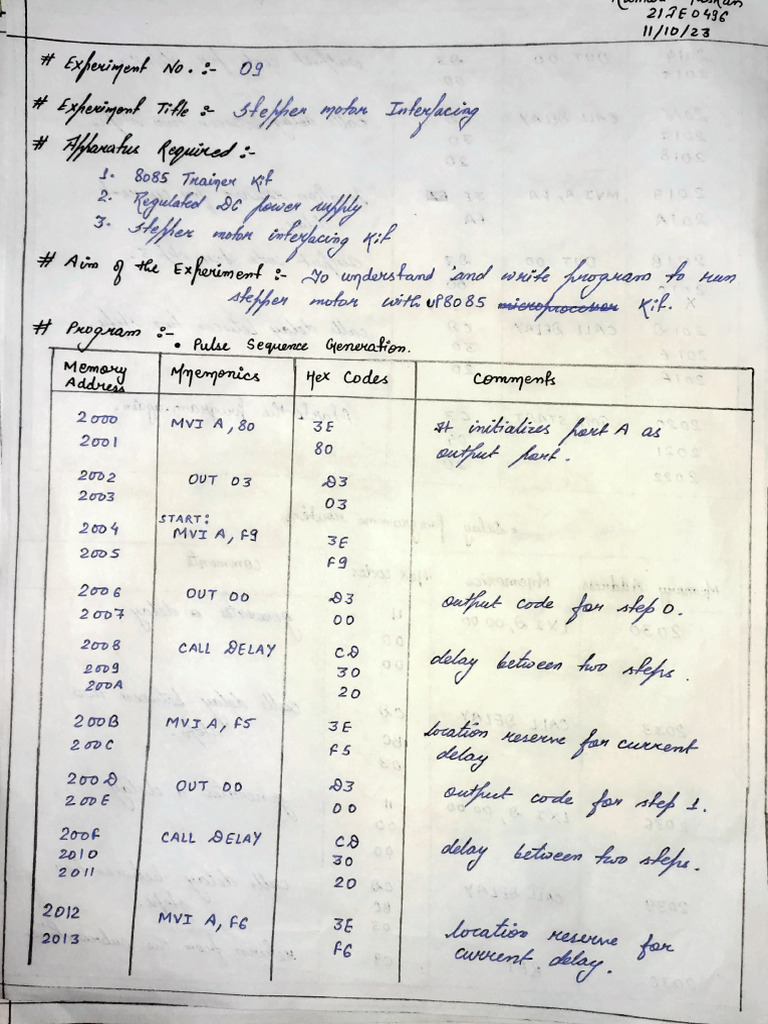 21JE0496
11/10/23
# Experiment No. :- 09
# Experiment Title :- Stepper motor Interfacing
# Apparatus Required :-
1. 8085 Trainer Kit
2. Regulated DC power supply
3. Stepper motor interfacing Kit
# Aim of the Experiment :- To understand and write program to run
stepper motor with μP8085 microprocessor Kit.
# Program :-
• Pulse Sequence Generation.
Memory Address Mnemonics Hex Codes Comments
2000 MVI A, 80 3E # initializes port A as
2001 80 output port.
2002 OUT 03 D3
2003 03
START:
2004 MVI A, F9 3E
2005 F9
2006 OUT 00 D3 output code for step 0.
2007 00
2008 CALL DELAY CD delay between two steps.
2009 30
200A 20
200B MVI A, F5 3E location reserve for current
200C F5 delay
200D OUT 00 D3 output code for step 1.
200E 00
200F CALL DELAY CD delay between two steps.
2010 30
2011 20
2012 MVI A, F6 3E location reserve for
2013 F6 current delay.